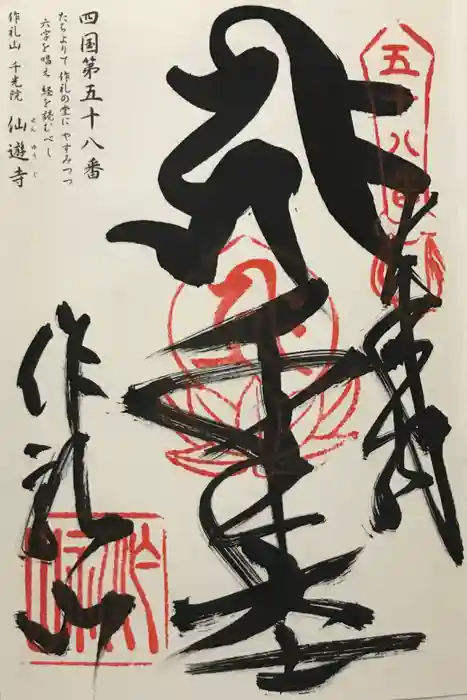 五十八番
𑖮𑖿𑖨𑖱𑖾
千手大士
四国第五十八番
たちよりて 作礼の堂に やすみつつ
六字を唱え 経を読むべし
作礼山 千光院 仙遊寺
せんゆうじ
作礼山